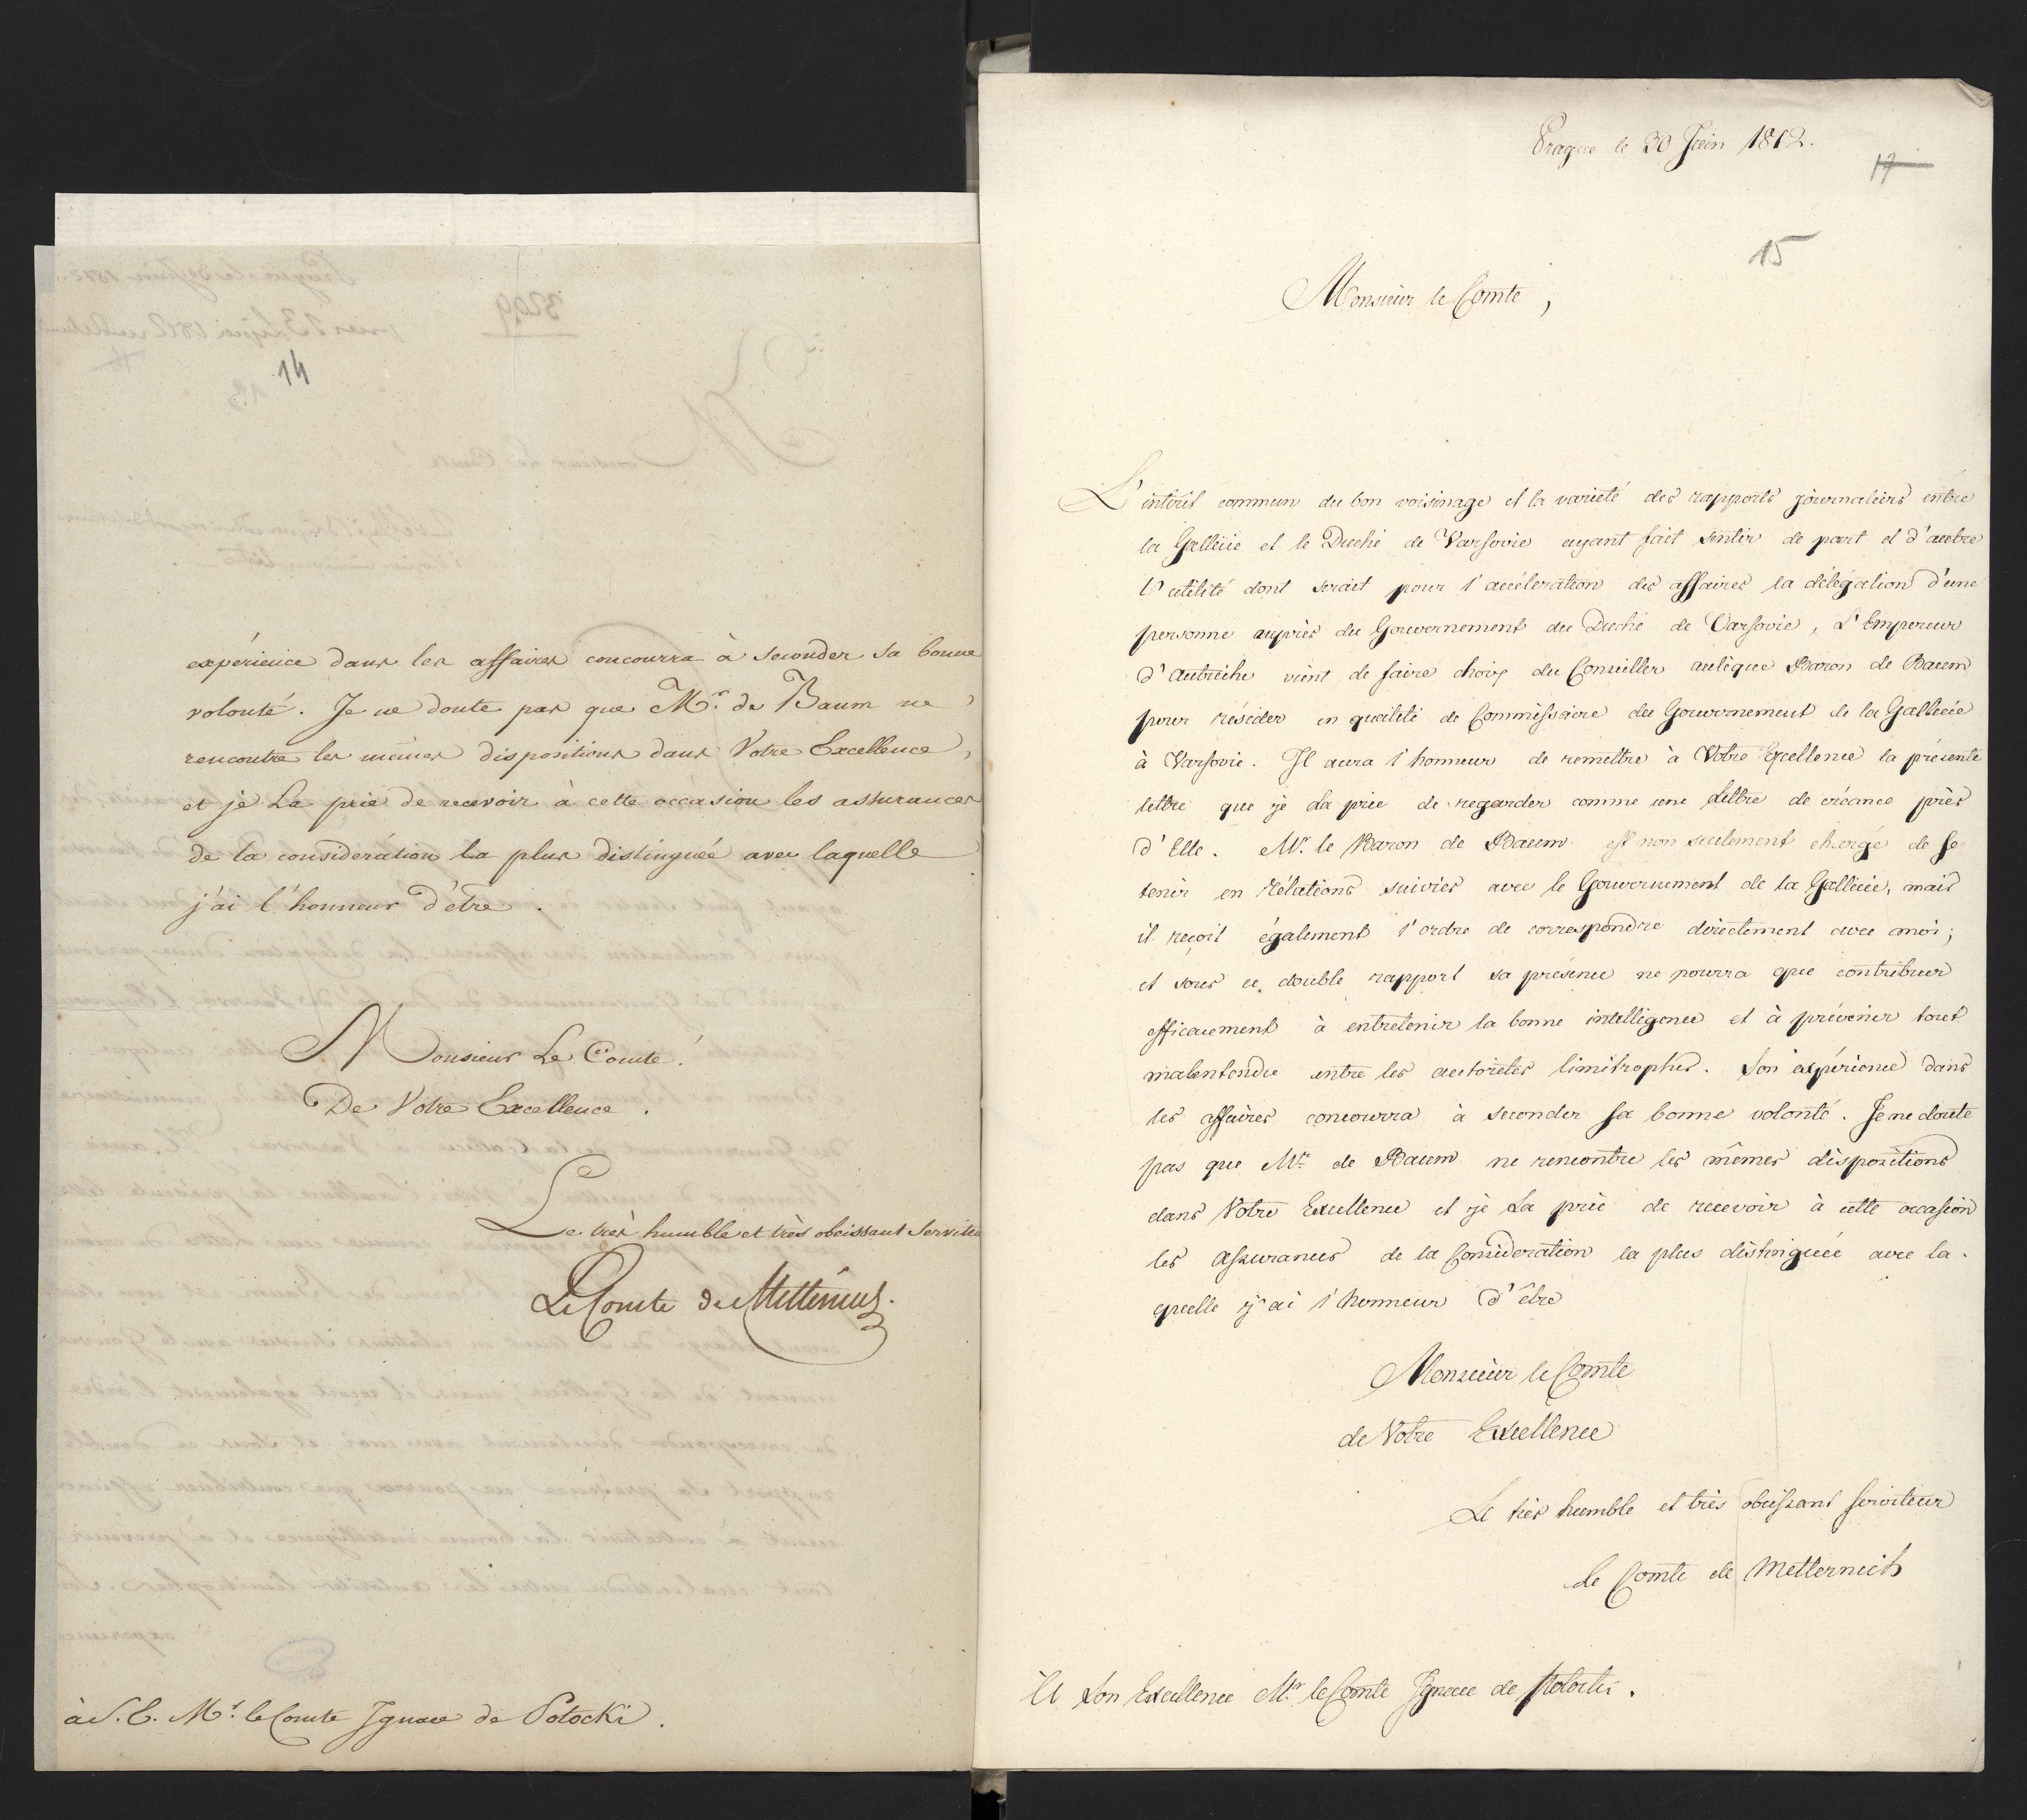 14
expérience dans les affaires concourra à seconder sa bonne
volonté. Je ne doute pas que Mr. de Baum ne
rencontre les mêmes dispositions dans Votre Excellence,
et je La prie de recevoir à cette occasion les assurances
de la considération la plus distinguée avec laquelle
j'ai l'honneur d'être.
Monsieur Le Comte!
De Votre Excellence.
Le très humble et très obéissant Serviteu
Le Comte de Metternich.
à S. E. Mr. le Comte Ignace de Potocki.
Prague le 30 Juin 1812.
17
15
Monsieur le Comte,
L'intérêt commun du bon voisinage et la varieté des rapports journaliers entre
la Gallicie et le Duché de Varsovie ayant fait sentir de part et d'autre
l'utilité dont serait pour l'accéleration des affaires la délégation d'une
personne auprès du Gouvernement du Duché de Varsovie, L'Empereur
d'Autriche vient de faire choix du Conseiller aulique Baron de Baum
pour résider en qualité de Commissaire du Gouvernement de la Gallicie
à Varsovie. Il aura l'honneur de remettre à Votre Excellence la présente
lettre que je La prie de regarder comme une Lettre de créance près
d'Elle. Mr. le Baron de Baum est non seulement chargé de se
tenir en rélations suivies avec le Gouvernement de la Gallicie, mais
il reçoit également l'ordre de correspondre directement avec moi;
et sous ce double rapport sa présence ne pourra que contribuer
efficacement à entretenir la bonne intelligence et à prévenir tout
malentendu entre les autorités limitrophes. Son expérience dans
les affaires concourra à seconder sa bonne volonté. Je ne doute
pas que Mr. de Baum ne rencontre les mêmes dispositions
dans Votre Excellence et je La prie de recevoir à cette occasion
les assurances de la Considération la plus distinguée avec la-
quelle j'ai l'honneur d'être
Monsieur le Comte
de Votre Excellence
Le très humble et très obéissant serviteur
Le Comte de Metternich
A Son Excellence Mr. le Comte Ignace de Potocki.